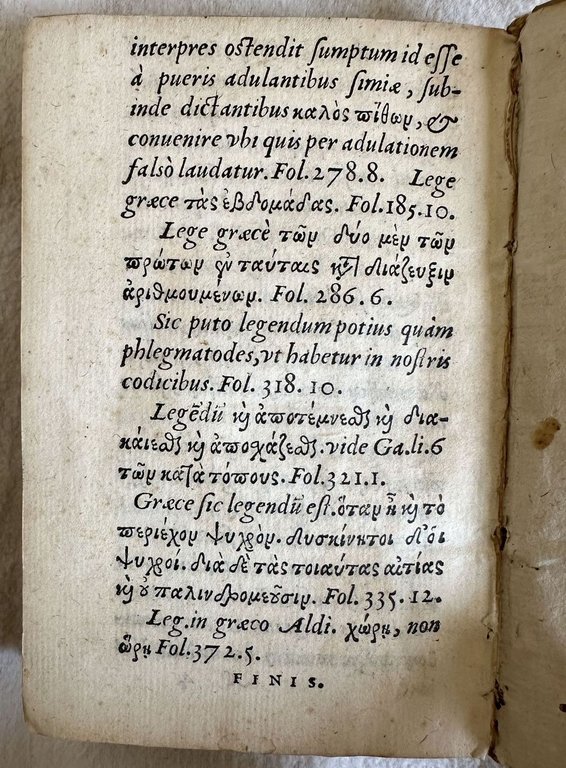 interpres ostendit sumptum id esse
à pueris adulantibus simiæ, sub-
inde dictantibus καλὸς πίθων, &
conuenire vbi quis per adulationem
falsò laudatur. Fol. 278.8. Lege
græce τὰς ἑβδομάδας. Fol. 185.10.
Lege græcè τῶν δύο μὲν τῶν
πρώτων ἐν ταύταις κτ διάζευξιν
ἀριθμουμένων. Fol. 286.6.
Sic puto legendum potius quàm
phlegmatodes, vt habetur in nostris
codicibus. Fol. 318.10.
Legẽdũ καὶ ἀποτέμνεσθαι καὶ δια-
κάιεσθαι καὶ ἀποσχάζεσθαι. vide Ga.li.6
τῶν κατὰ τόπους. Fol. 321.1.
Græce sic legendũ est. ὅταν ᾖ καὶ τὸ
περιέχον ψυχρὸν. δυσκίνητοι δ' ὁι
ψυχροί. διὰ δὲ τὰς τοιαύτας αἰτίας
καὶ ὑπαλινδρομεῦσιν. Fol. 335.12.
Leg. in græco Aldi. χώρῃ, non
ὥρῃ Fol. 372.5.
FINIS.